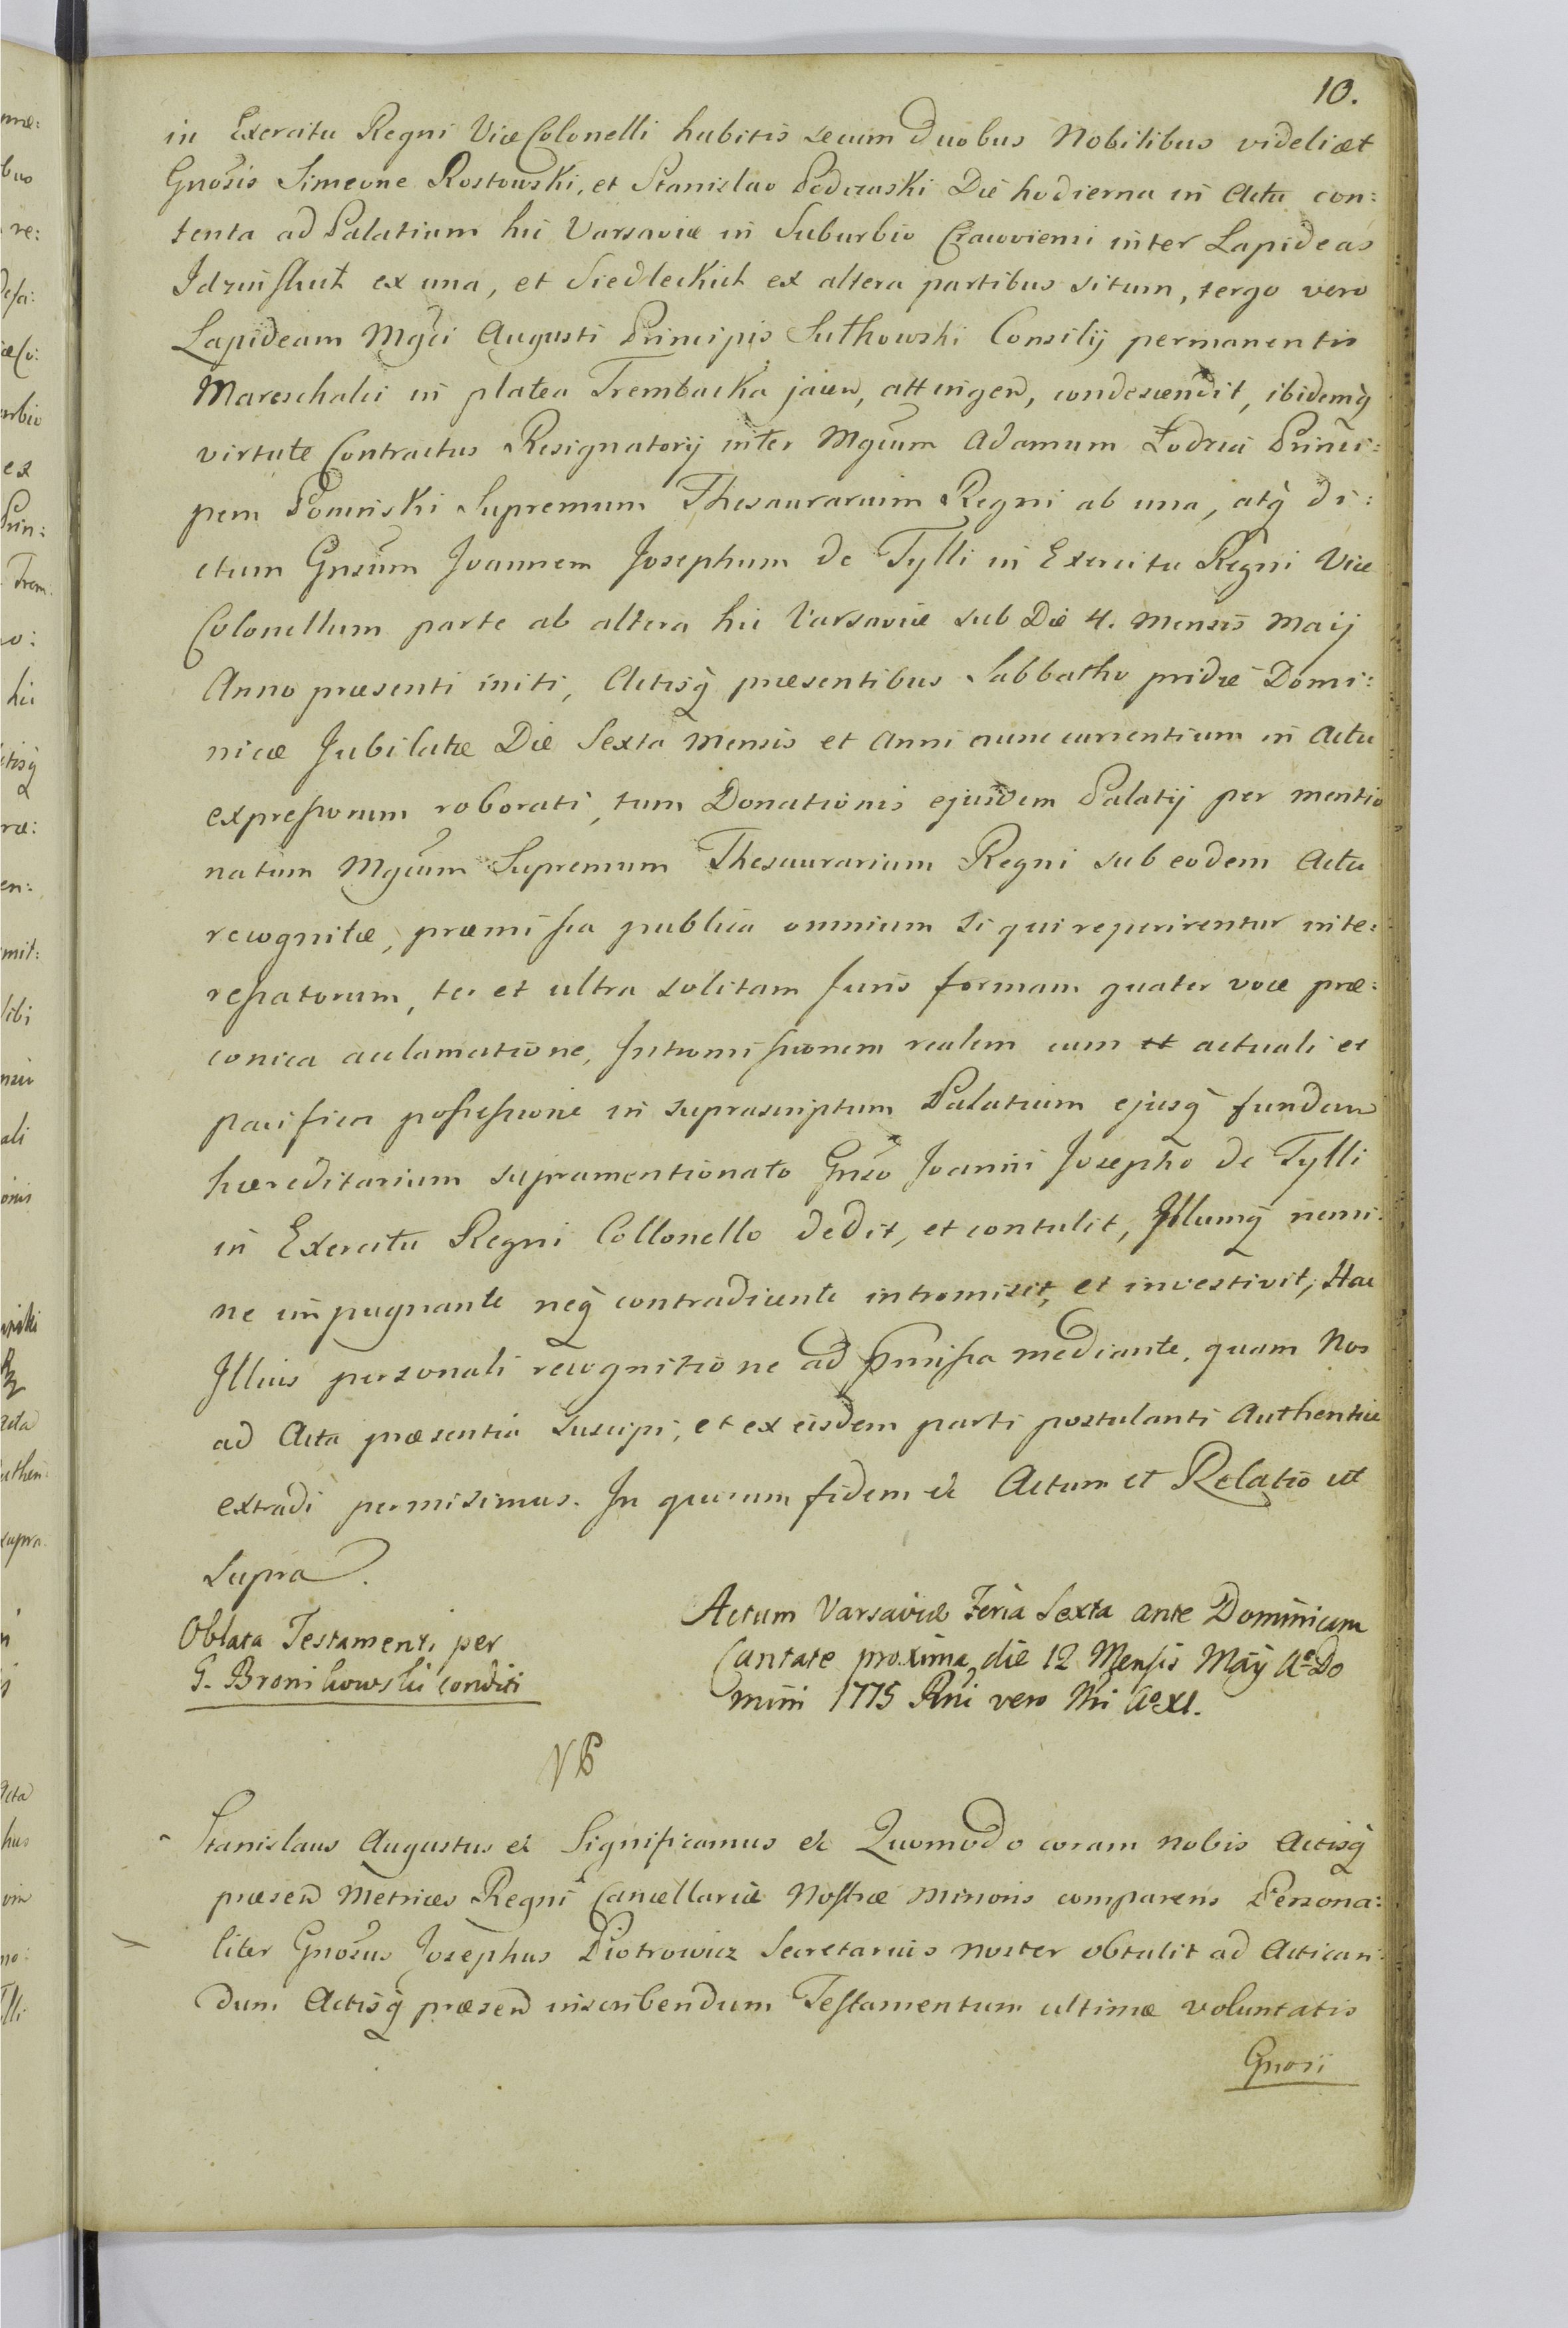 10.
in Exercitu Regni ViceColonelli habitis secum duobus Nobilibus videlicet
Gnosis Simeone Rostowski, et Stanislao Die hodierna in Actu con:
tenta ad Palatium hic Varsaviæ in Suburbio Cracoviensi inter Lapideas
ex una, et Siedleckich ex altera partibus situm, tergo vero
Lapideam Mgci Augusti Principis Sułkowski Consilij permanentis
Mareschalci in platea Trembacka jacen, attingen, condescendit, ibidemq
virtute Contractus Resignatorij inter Mgcum Adamum Łodzia Princi:
pem Poniński Supremum Thesaurarium Regni ab una, atq di:
ctum Gnsum Joannem Josephum de Tylli in Exercitu Regni Vice
Colonellum parte ab altera hic Varsaviæ sub Die 4. Mensis Maij
Anno præsenti initi, Actisq præsentibus Sabbatho pridie Domi:
nicæ Jubilate Die Sexta Mensis et Anni nunc currentium in Actu
expressorum roborati, tum Donationis ejusdem Palatij per mentio
natum Mgcum Supremum Thesaurarium Regni sub eodem Actu
recognitæ, præmissa publica omnium si qui reperirentur inte:
ressatorum, ter et ultra solitam Juris formam quater voce præ:
conica acclamatione, Intromissionem realem cum et actuali et
pacifica possessione in suprascriptum Palatium ejusq fundum
hæreditarium supramentionato Gnso Joanni Josepho de Tylli
in Exercitu Regni Collonello dedit, et contulit, Illumq nemi:
ne impugnante neq contradicente intromisit, et investivit, Hac
Illius personali recognitione ad præmissa mediante, quam Nos
ad Acta præsentia suscipi, et ex eisdem parti postulanti Authentice
extradi permisimus. In quorum fidem &c Actum et Relatio ut
Supra.
Oblata Testamenti per
G. Bronikowski conditi
Actum Varsaviæ Feria Sexta ante Dominicam
Cantate proxima, die 12 Mensis Maÿ Ao Do
mini 1775 Rni vero Nri Ao XI.
Stanislaus Augustus &c Significamus &c Quomodo coram nobis Actisq
præsen Metrices Regni Cancellariæ Nostræ Minoris comparens Persona:
liter Gnosus Josephus Piotrowicz Secretarius noster obtulit ad Actican:
dum Actisq præsen inscribendum Testamentum ultimæ voluntatis
Gnosi